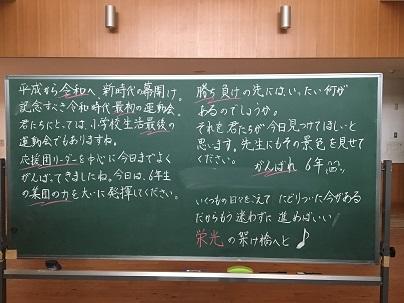 平成から令和へ 新時代の幕開け。
記念すべき令和時代最初の運動会。
君たちにとっては、小学校生活最後の
運動会でもありますね。
応援団リーダーを中心に今日までよく
がんばってきましたね。今日は、6年生
の集団の力を大いに発揮してください。
勝ち負けの先には、いったい何が
あるのでしょうか。
それを君たちが今日見つけてほしいと
思います。先生にもその景色を見せて
ください。
がんばれ 6年
いくつもの日々をこえて たどりついた今がある
だからもう迷わずに 進めばいい
栄光の架け橋へと♪